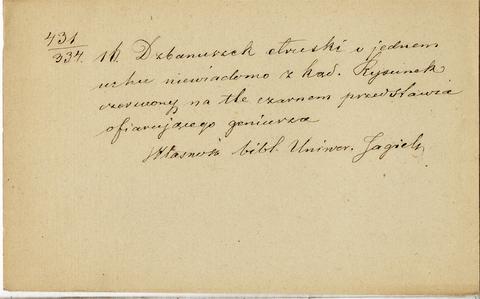 431
334. 1b. Dzbanuszek etruski o jednem
uchu niewiadomo z kąd. Rysunek
czerwony na tle czarnem przedstawia
ofiarującego geniusza
Własność bibl. Uniwer. Jagiels